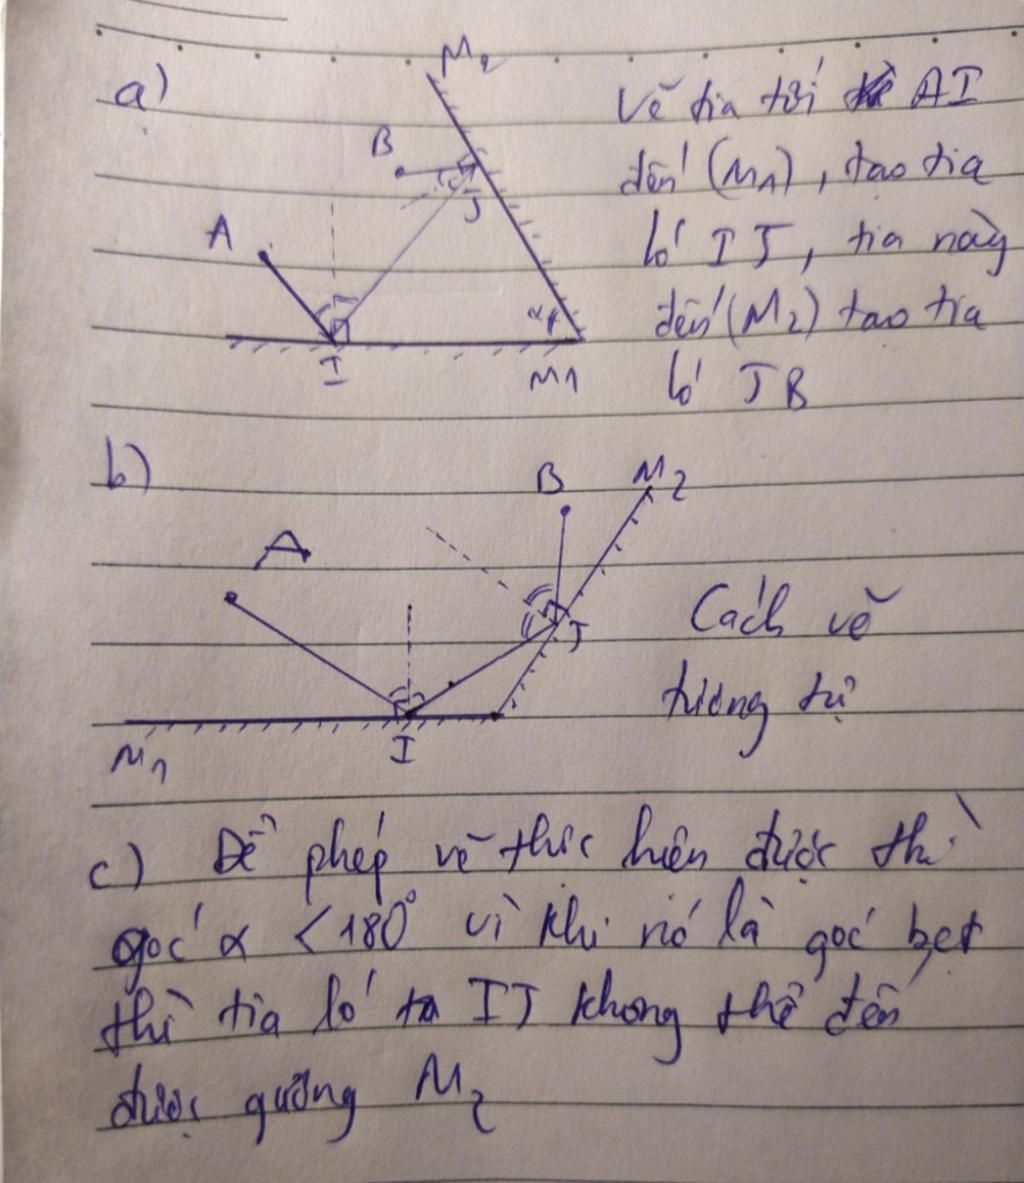 a)
M2
B
J
A
I
α
M1
Vẽ tia tới AI
đến (M1), tạo tia
ló IJ, tia này
đến (M2) tạo tia
ló JB
b)
B
M2
A
J
M1
I
Cách vẽ
tương tự
c) Để phép vẽ thực hiện được thì
góc α < 180° vì khi nó là góc bẹt
thì tia ló IJ không thể đến
được gương M2